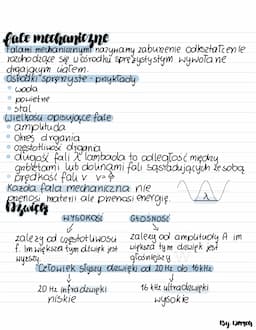 fale mechaniczne
Falami mechanicznymi nazywamy zaburzenie odkształcenie
rozchodzące się w ośrodku sprężystym wywołane
drgającym ciałem.
Ośrodki sprężyste - przykłady
• woda
• powietrze
• stal
Wielkości opisujące fale
• amplituda
• okres drgania
• częstotliwość drgania
• długość fali λ lambda to odległość między
grzbietami lub dolinami fali sąsiadujących ze sobą
• prędkość fali v
Każda fala mechaniczna nie
przenosi materii ale przenosi energię.
λ
Dźwięk
WYSOKOŚĆ GŁOŚNOŚĆ
zależy od częstotliwości
f. Im większa tym dźwięk jest
wyższy
zależy od amplitudy A im
większa tym dźwięk jest
głośniejszy
Człowiek słyszy dźwięki od 20 Hz do 16 kHz
20 Hz infradźwięki
niskie
16 kHz ultradźwięki
wysokie
By